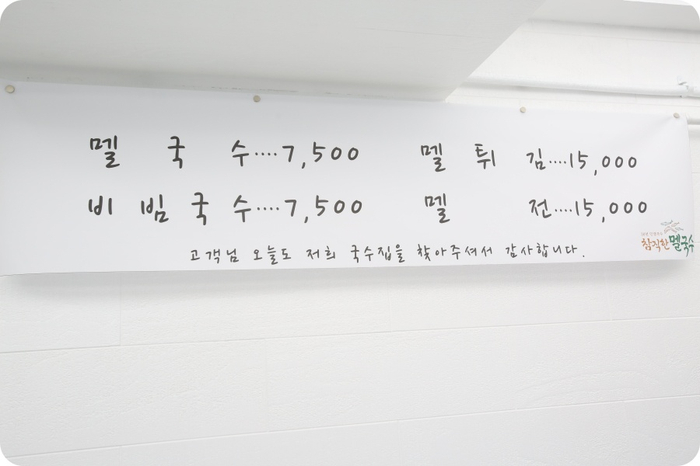 멜 국 수....7,500 멜 튀 김....15,000
비 빔 국 수....7,500 멜 전....15,000
고객님 오늘도 저희 국수집을 찾아주셔서 감사합니다.
참직한 멜국수